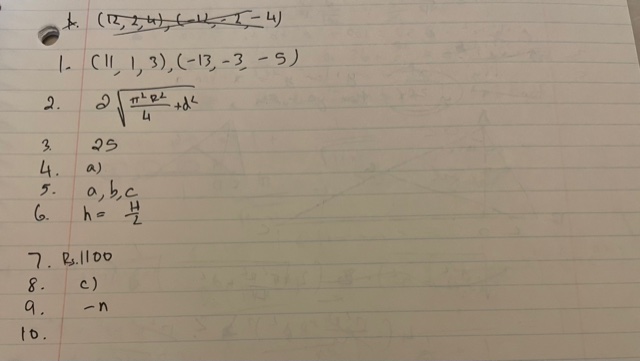 1. (12, 2, 4), (-12, -2, -4)
1. (11, 1, 3), (-13, -3, -5)
2. 2√(π²R²/4 + d²)
3. 25
4. a)
5. a, b, c
6. h = H/2
7. Rs.1100
8. c)
9. -n
10.